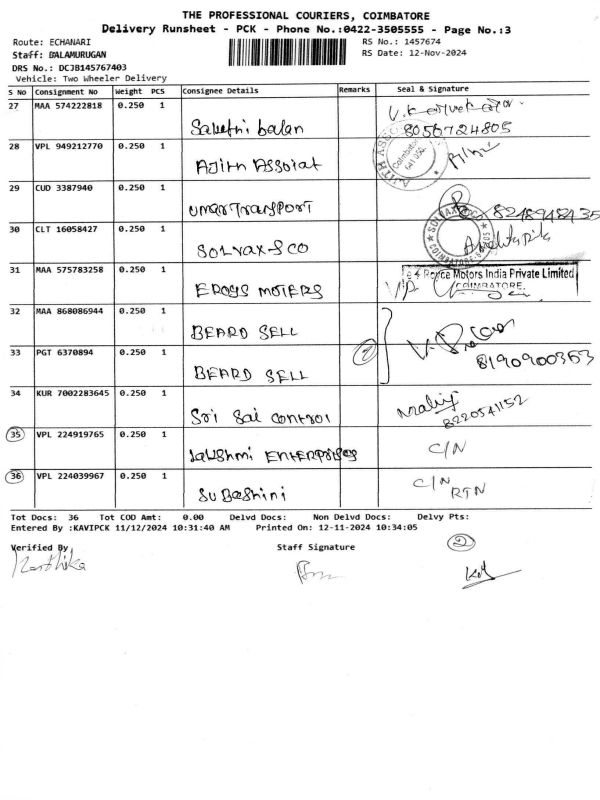 THE PROFESSIONAL COURIERS, COIMBATORE
Delivery Runsheet - PCK - Phone No.:0422-3505555 - Page No.:3
Route: ECHANARI RS No.: 1457674
Staff: BALAMURUGAN RS Date: 12-Nov-2024
DRS No.: DCJB145767403
Vehicle: Two Wheeler Delivery
S No Consignment No Weight PCS Consignee Details Remarks Seal & Signature
27 MAA 574222818 0.250 1
balan 8056724805
28 VPL 949212770 0.250 1
AJITH ASSOIAT
29 CUD 3387940 0.250 1
UMAR TRANSPORT 8248948435
30 CLT 16058427 0.250 1
SOLVAX & CO
31 MAA 575783258 0.250 1 Royce Motors India Private Limited
EROYS MOTERS COIMBATORE.
32 MAA 868086944 0.250 1
BEARD SELL
33 PGT 6370894 0.250 1 2 8190900363
BEARD SELL
34 KUR 7002283645 0.250 1
Sri Sai Control 8220541152
35 VPL 224919765 0.250 1 C/N
Lakshmi ENTERPRISES
36 VPL 224039967 0.250 1 C/N
SuBashini RTN
Tot Docs: 36 Tot COD Amt: 0.00 Delvd Docs: Non Delvd Docs: Delvy Pts:
Entered By :KAVIPCK 11/12/2024 10:31:40 AM Printed On: 12-11-2024 10:34:05
Verified By Staff Signature 2
Karthika